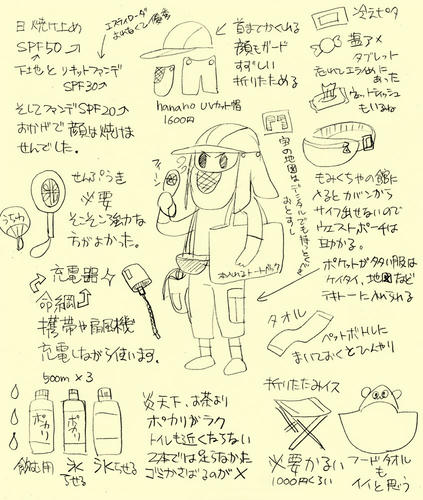 日焼け止め
SPF50
下地とリキッドファンデ
SPF30
そしてファンデSPF20
おかげで顔は焼けま
せんでした。
エスティローダー
首までかくれる
顔もガード
すずしい
折りたためる
nanano UVカット帽
1600円
冷えピタ
塩アメ
タブレット
ウェットティッシュ
もいるね
せんぷうき
必要
そこそこ強力な
方がよかった。
うちわ
もみくちゃの館に
入るとカバンから
サイフ出せないので
ウエストポーチは
助かる。
ポケットが多い服は
ケイタイ、地図など
テキトーに入れられる
本入れるトートバック
充電器
命綱
携帯や扇風機
充電しながら使います。
タオル
ペットボトルに
まいておくとひんやり
500m×3
ポカリ
ポカリ
飲む用
氷らせる
氷らせる
炎天下、お茶より
ポカリがラク
トイルも近くならない
2本では足らなかった
ゴミかさばるのが×
折りたたみイス
必要かない
1000円くらい
フードタオル
も
イイと思う